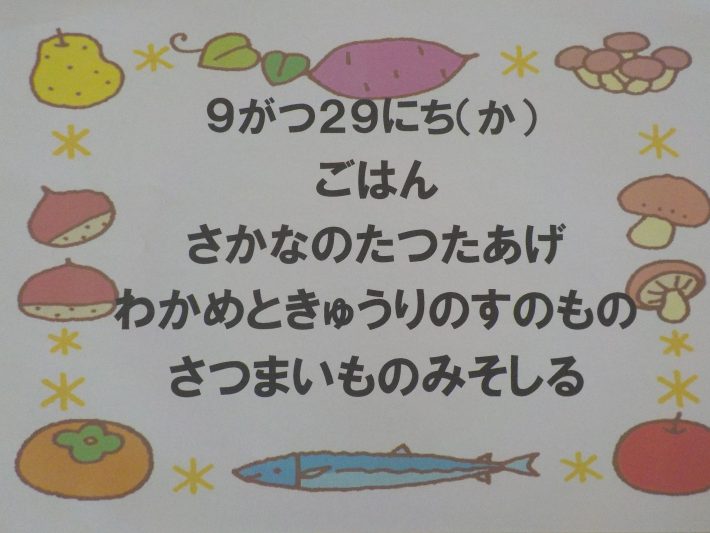 ９がつ２９にち（か）
ごはん
さかなのたつたあげ
わかめときゅうりのすのもの
さつまいものみそしる